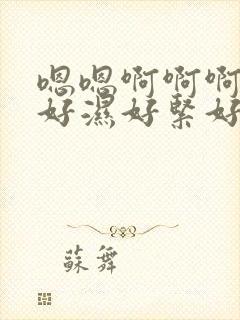 嗯嗯啊啊啊
好濕好緊好
蘇舞